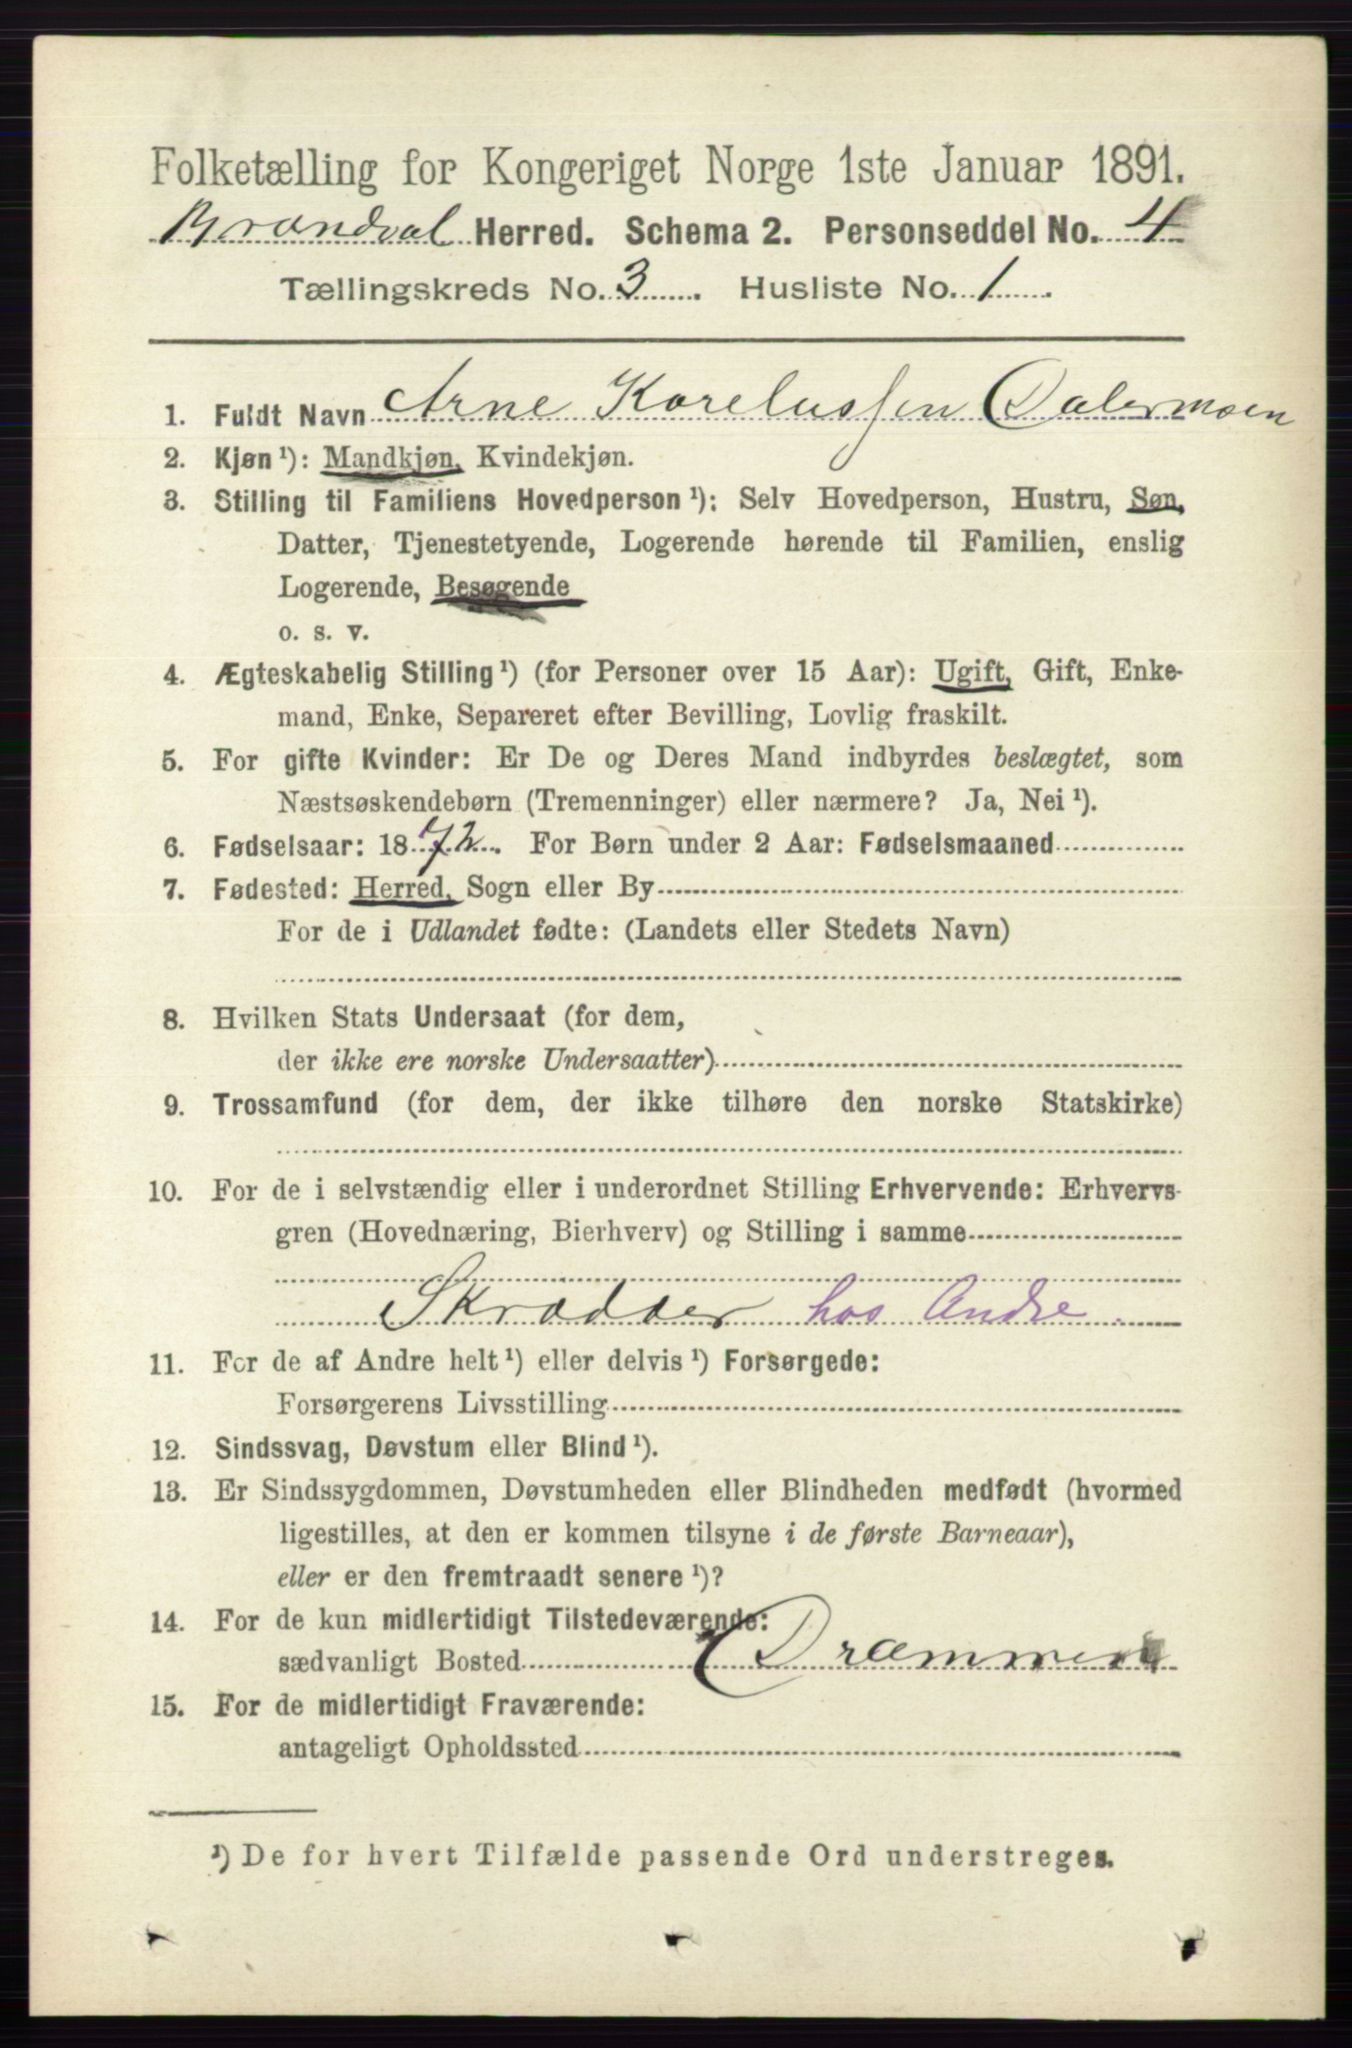 Folketælling for Kongeriget Norge 1ste Januar 1891.
Brandval Herred. Schema 2. Personseddel No. 4
Tællingskreds No. 3. Husliste No. 1.
1. Fuldt Navn Arne Karelussen Dalermoen
2. Kjøn¹): Mandkjøn, Kvindekjøn.
3. Stilling til Familiens Hovedperson¹): Selv Hovedperson, Hustru, Søn,
Datter, Tjenestetyende, Logerende hørende til Familien, enslig
Logerende, Besøgende
o. s. v.
4. Ægteskabelig Stilling¹) (for Personer over 15 Aar): Ugift, Gift, Enke-
mand, Enke, Separeret efter Bevilling, Lovlig fraskilt.
5. For gifte Kvinder: Er De og Deres Mand indbyrdes beslægtet, som
Næstsøskendebørn (Tremenninger) eller nærmere? Ja, Nei¹).
6. Fødselsaar: 1872. For Børn under 2 Aar: Fødselsmaaned
7. Fødested: Herred, Sogn eller By
For de i Udlandet fødte: (Landets eller Stedets Navn)
8. Hvilken Stats Undersaat (for dem,
der ikke ere norske Undersaatter)
9. Trossamfund (for dem, der ikke tilhøre den norske Statskirke)
10. For de i selvstændig eller i underordnet Stilling Erhvervende: Erhvervs-
gren (Hovednæring, Bierhverv) og Stilling i samme
Skrædder hos Andre.
11. For de af Andre helt¹) eller delvis¹) Forsørgede:
Forsørgerens Livsstilling
12. Sindssvag, Døvstum eller Blind¹).
13. Er Sindssygdommen, Døvstumheden eller Blindheden medfødt (hvormed
ligestilles, at den er kommen tilsyne i de første Barneaar),
eller er den fremtraadt senere¹)?
14. For de kun midlertidigt Tilstedeværende:
sædvanligt Bosted Drammen
15. For de midlertidigt Fraværende:
antageligt Opholdssted
¹) De for hvert Tilfælde passende Ord understreges.